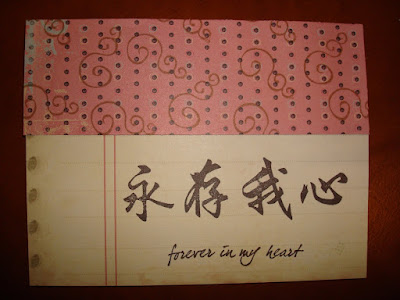 永存我心
forever in my heart